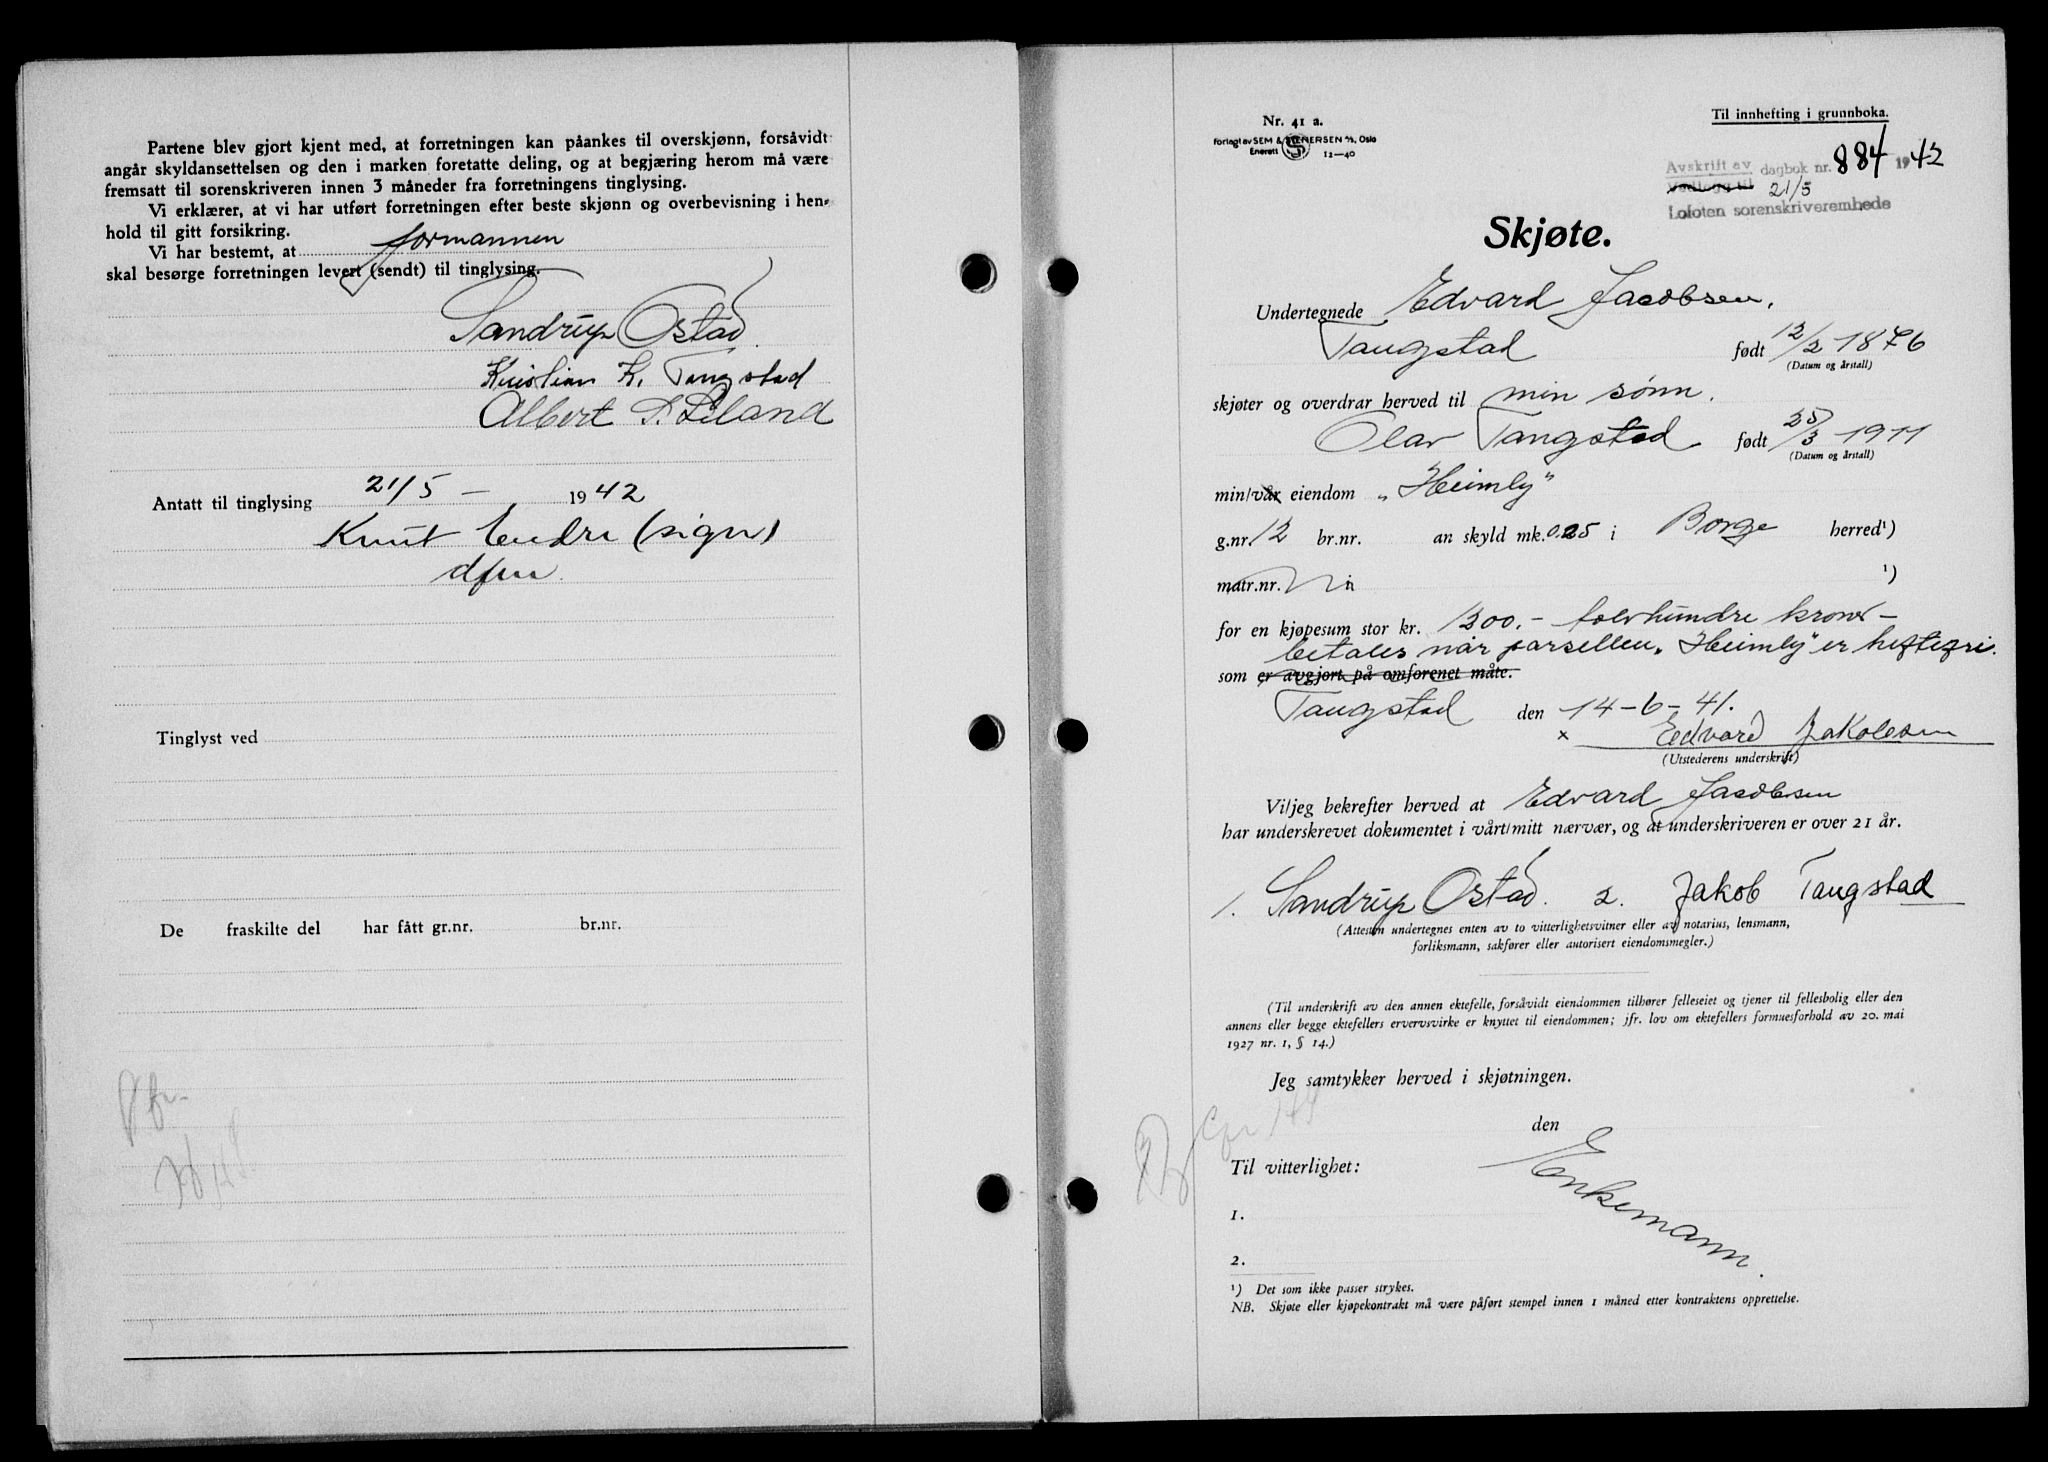 Partene blev gjort kjent med, at forretningen kan påankes til overskjønn, forsåvidt
angår skyldansettelsen og den i marken foretatte deling, og at begjæring herom må være
fremsatt til sorenskriveren innen 3 måneder fra forretningens tinglysing.
Vi erklærer, at vi har utført forretningen efter beste skjønn og overbevisning i hen-
hold til gitt forsikring.
Vi har bestemt, at formannen
skal besørge forretningen levert (sendt) til tinglysing.
Sandrup Ostad
Kristian K. Tangstad
Albert P. Leland
Antatt til tinglysing 21/5 - 1942
Knut Endre (sign)
dfm
Tinglyst ved
De fraskilte del har fått gr.nr. br.nr.
Nr. 41 a.
Forlagt av SEM & STENERSEN A/S, Oslo
Enerett 12-40
Til innhefting i grunnboka.
Avskrift av dagbok nr. 884 1942
Vedlegg til 21/5
Lofoten sorenskriverembede
Skjøte.
Undertegnede Edvard Jacobsen.
Tangstad født 12/2 1876
(Datum og årstall)
skjøter og overdrar herved til min sønn.
Olav Tangstad født 25/3 1911
(Datum og årstall)
min/vår eiendom "Heimly"
g.nr. 12 br.nr. an skyld mk. 0.25 i Borge herred¹)
matr.nr. i ¹)
for en kjøpesum stor kr. 1200.- tolvhundre kroner -
betales når parsellen "Heimly" er heftefri.
som er avgjort på omforenet måte.
Tangstad den 14-6-41.
x Edvard Jakobsen
(Utstederens underskrift)
Vi/jeg bekrefter herved at Edvard Jacobsen
har underskrevet dokumentet i vårt/mitt nærvær, og at underskriveren er over 21 år.
1. Sandrup Ostad. 2. Jakob Tangstad
(Attesten undertegnes enten av to vitterlighetsvitner eller av notarius, lensmann,
forliksmann, sakfører eller autorisert eiendomsmegler.)
(Til underskrift av den annen ektefelle, forsåvidt eiendommen tilhører felleseiet og tjener til fellesbolig eller den
annens eller begge ektefellers ervervsvirke er knyttet til eiendommen; jfr. lov om ektefellers formuesforhold av 20. mai
1927 nr. 1, § 14.)
Jeg samtykker herved i skjøtningen.
den
Til vitterlighet:
Enkemann.
1.
2.
¹) Det som ikke passer strykes.
NB. Skjøte eller kjøpekontrakt må være påført stempel innen 1 måned etter kontraktens opprettelse.